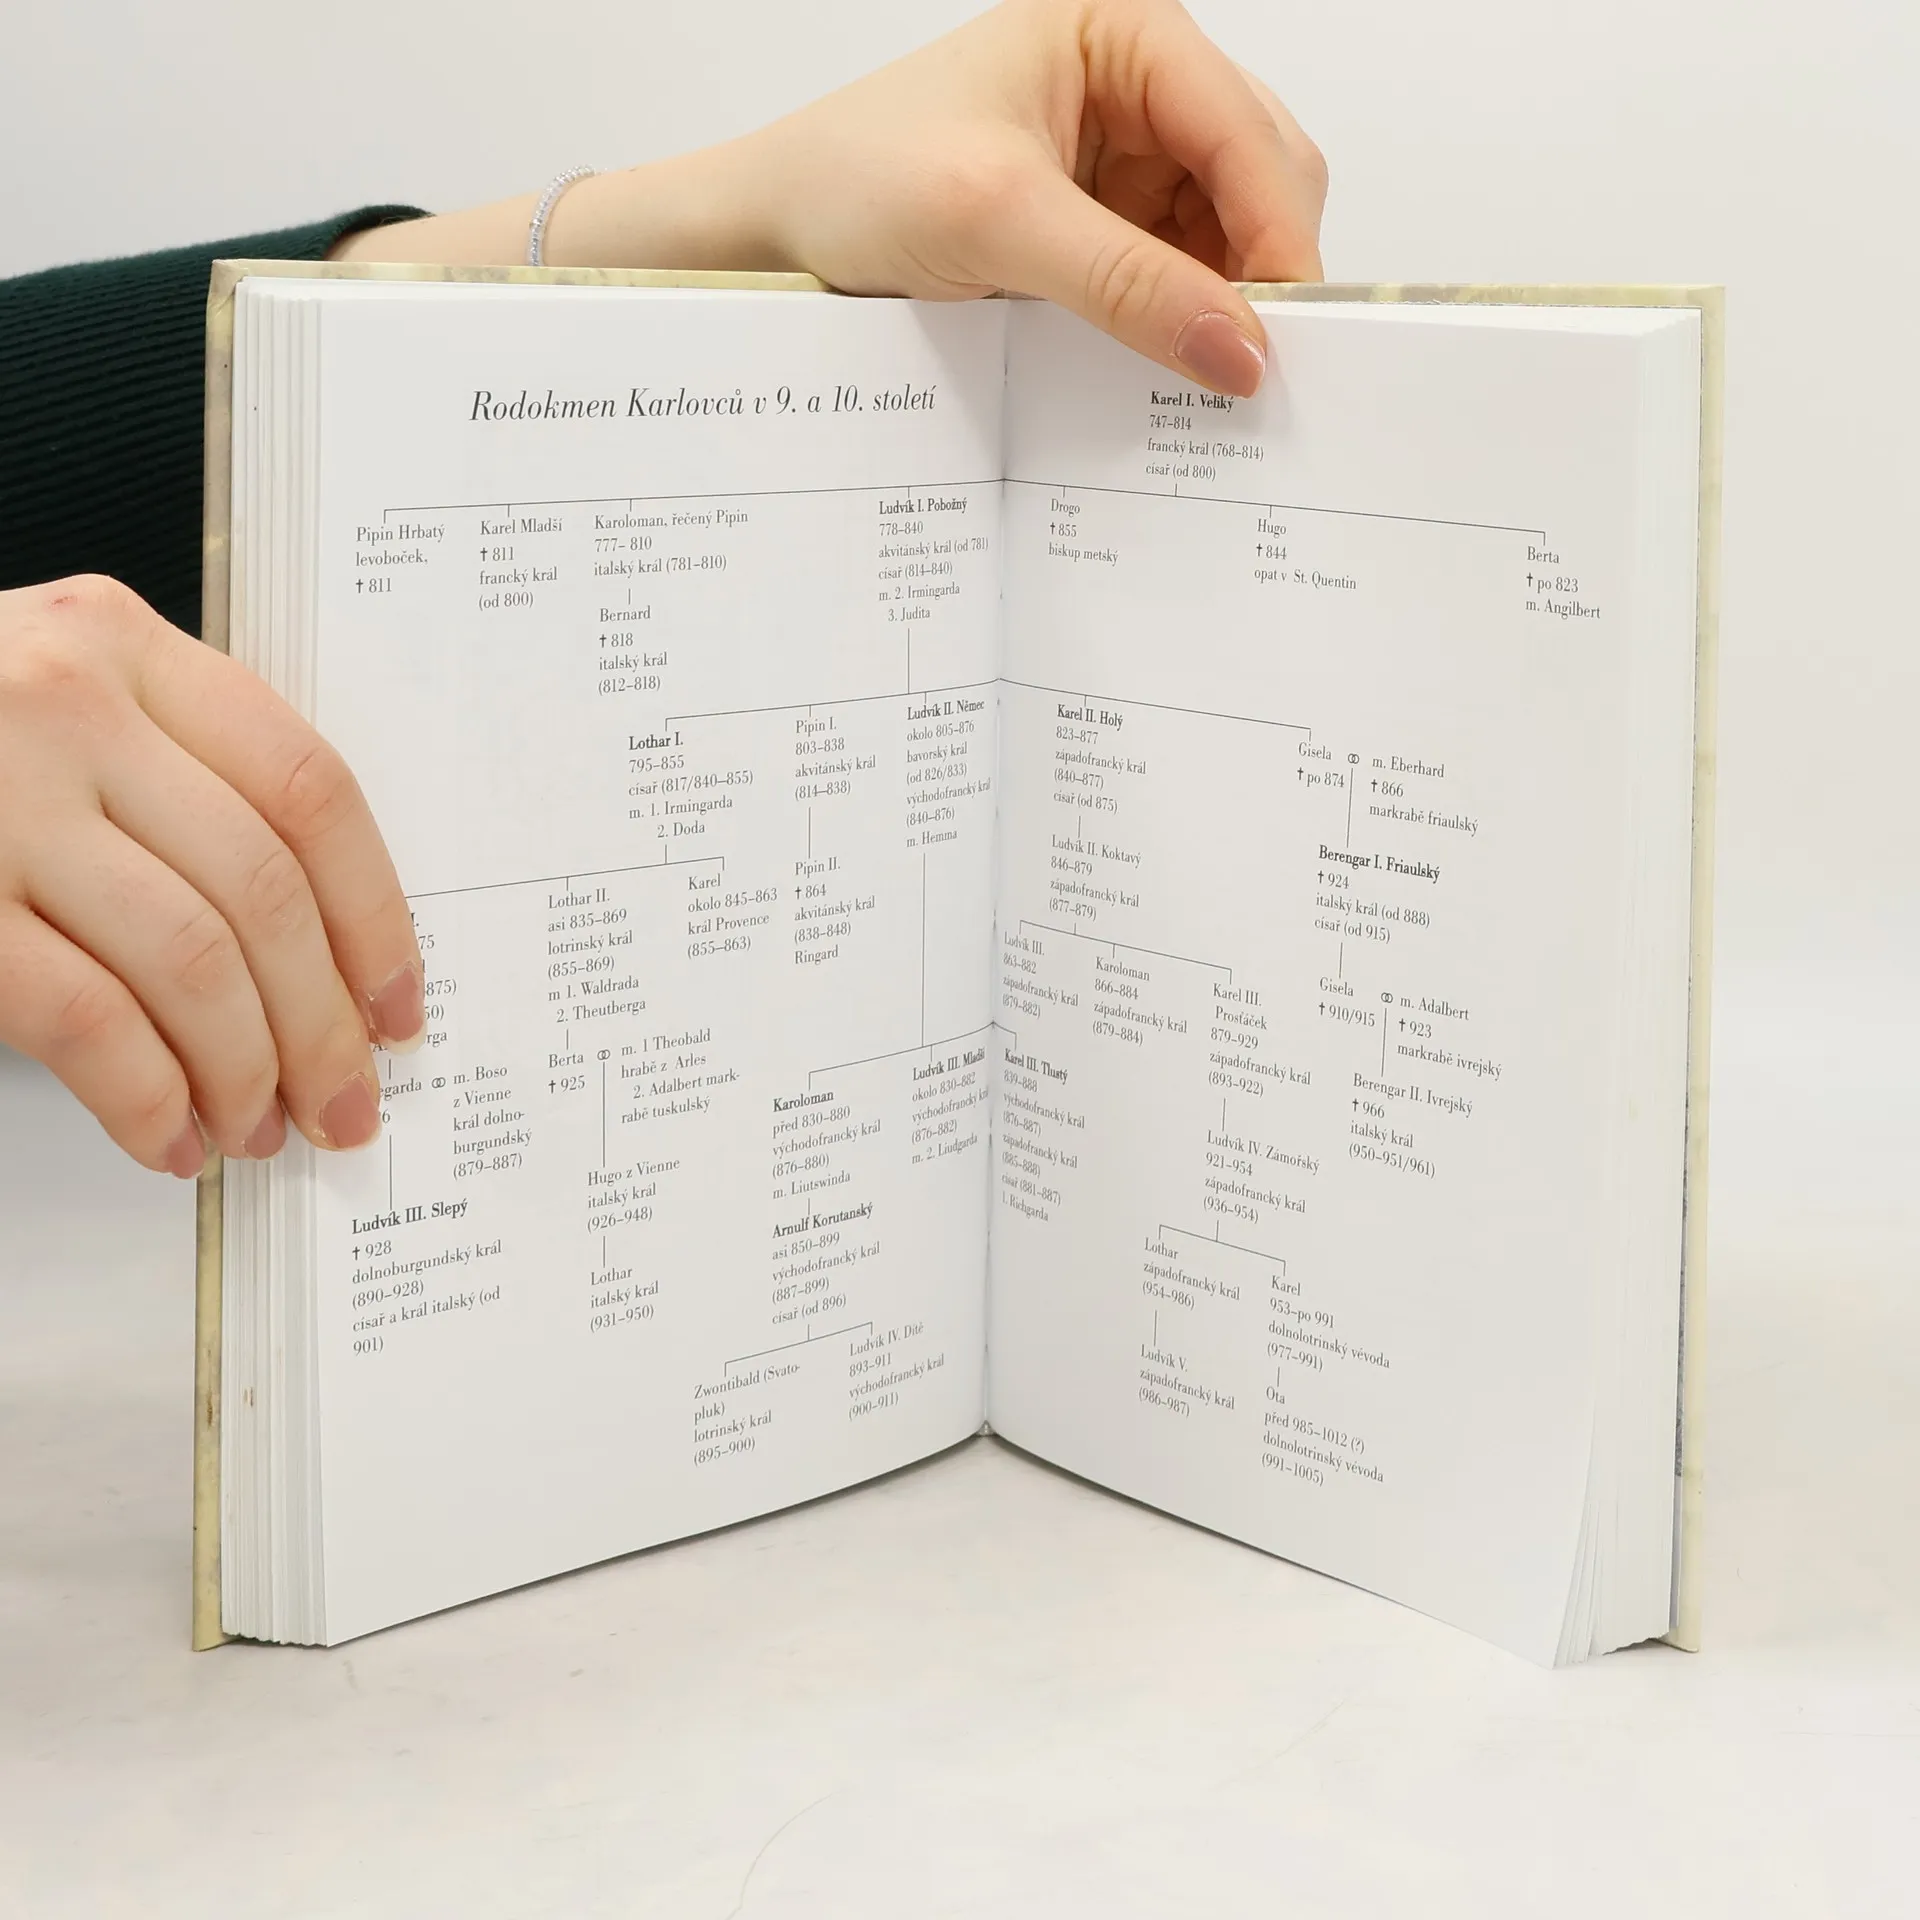 Rodokmen Karlovců v 9. a 10. století
Karel I. Veliký
747–814
francký král (768–814)
císař (od 800)
Pipin Hrbatý
levoboček,
† 811
Karel Mladší
† 811
francký král
(od 800)
Karoloman, řečený Pipin
777– 810
italský král (781–810)
Bernard
† 818
italský král
(812–818)
Ludvík I. Pobožný
778–840
akvitánský král (od 781)
císař (814–840)
m. 2. Irmingarda
3. Judita
Drogo
† 855
biskup metský
Hugo
† 844
opat v St. Quentin
Berta
† po 823
m. Angilbert
Lothar I.
795–855
císař (817/840–855)
m. 1. Irmingarda
2. Doda
Pipin I.
803–838
akvitánský král
(814–838)
Ludvík II. Němec
okolo 805–876
bavorský král
(od 826/833)
východofrancký král
(840–876)
m. Hemma
Karel II. Holý
823–877
západofrancký král
(840–877)
císař (od 875)
Gisela ⚭ m. Eberhard
† po 874
† 866
markrabě friaulský
I.
75
875)
50)
rga
egarda ⚭ m. Boso
6
z Vienne
král dolno-
burgundský
(879–887)
Ludvík III. Slepý
† 928
dolnoburgundský král
(890–928)
císař a král italský (od
901)
Lothar II.
asi 835–869
lotrinský král
(855–869)
m 1. Waldrada
2. Theutberga
Karel
okolo 845–863
král Provence
(855–863)
Pipin II.
† 864
akvitánský král
(838–848)
Ringard
Berta ⚭ m. 1 Theobald
† 925
hrabě z Arles
2. Adalbert mark-
rabě tuskulský
Hugo z Vienne
italský král
(926–948)
Lothar
italský král
(931–950)
Karoloman
před 830–880
východofrancký král
(876–880)
m. Liutswinda
Arnulf Korutanský
asi 850–899
východofrancký král
(887–899)
císař (od 896)
Zwontibald (Svato-
pluk)
lotrinský král
(895–900)
Ludvík IV. Dítě
893–911
východofrancký král
(900–911)
Ludvík III. Mladší
okolo 830–882
východofrancký král
(876–882)
m. 2. Liudgarda
Karel III. Tlustý
839–888
východofrancký král
(876–887)
západofrancký král
(885–888)
císař (881–887)
1. Richgarda
Ludvík II. Koktavý
846–879
západofrancký král
(877–879)
Ludvík III.
863–882
západofrancký král
(879–882)
Karoloman
866–884
západofrancký král
(879–884)
Karel III.
Prosťáček
879–929
západofrancký král
(893–922)
Ludvík IV. Zámořský
921–954
západofrancký král
(936–954)
Lothar
západofrancký král
(954–986)
Ludvík V.
západofrancký král
(986–987)
Karel
953–po 991
dolnolotrinský vévoda
(977–991)
Ota
před 985–1012 (?)
dolnolotrinský vévoda
(991–1005)
Berengar I. Friaulský
† 924
italský král (od 888)
císař (od 915)
Gisela ⚭ m. Adalbert
† 910/915
† 923
markrabě ivrejský
Berengar II. Ivrejský
† 966
italský král
(950–951/961)